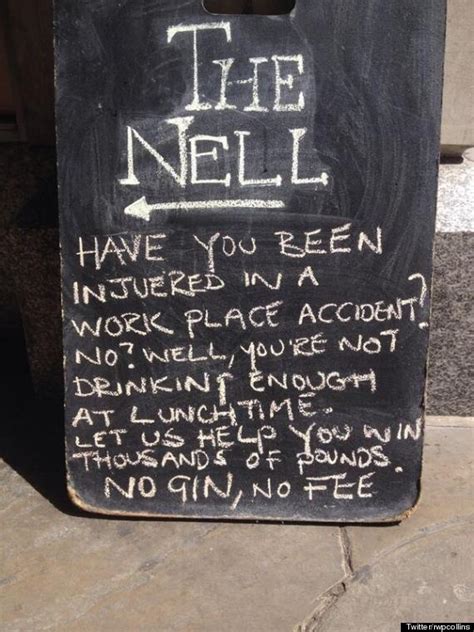 THE
NELL
HAVE YOU BEEN
INJUERED IN A
WORK PLACE ACCIDENT?
NO? WELL, YOU'RE NOT
DRINKING ENOUGH
AT LUNCHTIME.
LET US HELP YOU WIN
THOUSANDS OF POUNDS.
NO GIN, NO FEE
Twitter/rwpcollins